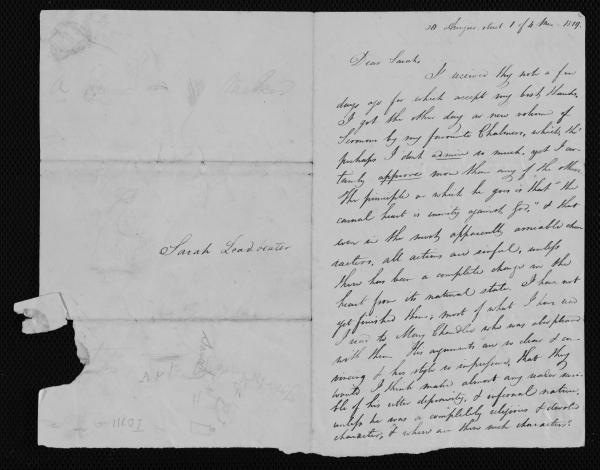 Sarah Leadbeater
1 of 4 Mo. 1819.
Dear Sarah,
I received thy note a few
days ago for which accept my best thanks,
I got the other day a new volume of
Sermons by my favourite Chalmers, which, tho'
perhaps I don't admire so much, yet I cer-
tainly approve more than any of the others.
The principle on which he goes is that "the
carnal heart is enmity against God," & that
even in the most apparently amiable cha-
racters, all actions are sinful, unless
there has been a complete change in the
heart from its natural state. I have not
yet finished them; most of what I have read
I read to Mary Chandlee who was also pleased
with them. His arguments are so clear & con-
vincing & his style so impressive, that they
would I think make almost any reader sensi-
ble of his utter depravity, & infernal nature,
unless he was a completely religious & devoted
character, & where are there such characters?